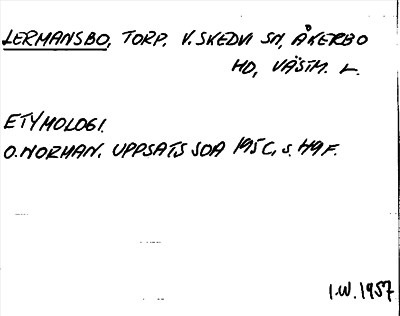 LERMANSBO, TORP, V. SKEDVI SN, ÅKERBO
HD, VÄSTM. L.
ETYMOLOGI.
O. NORMAN. UPPSATS SOA 195C, s. 49F.
I.W. 1957